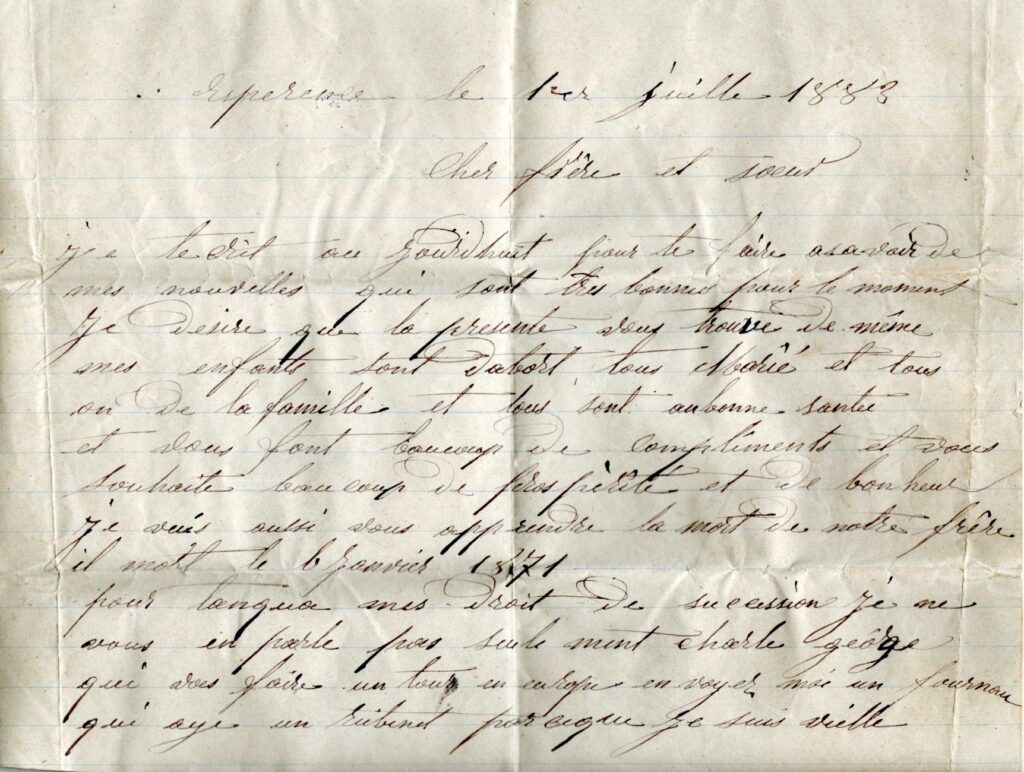 Esperence le 1er juille 1883
Cher frêre et soeur
je te crit au jourdhuit pour te faire asavoir de
mes nouvelles qui sont tres bonnes pour le moment
Je desire que la presente vous trouve de même
mes enfants sont dabort tous Marié et tous
on de la famille et tous sont aubonne santée
et vous font beaucoup de compliments et vous
souhaite beaucoup de prospérité et de bonheur
je vais aussi vous apprendre la mort de notre frêre
il mort le 6 janvier 1871
pour tanqua mes droit de sucession je ne
vous en parle pas seule ment charle george
qui vas faire un tour en europe en voyer moi un fourneau
qui aye un rubinet parceque je suis vielle